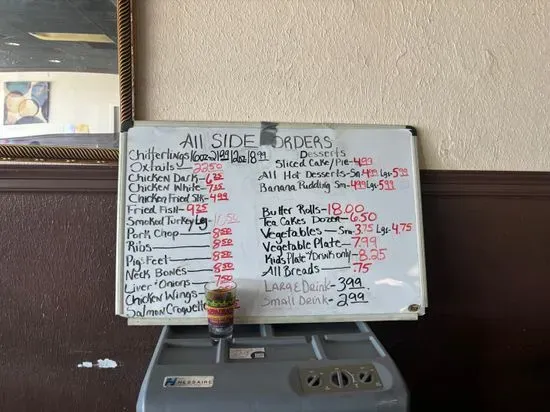 All SIDE ORDERS
Chitterlings 16oz-21.99 12oz 18.99
Oxtails - 22.50
Chicken Dark - 6.25
Chicken White - 7.25
Chicken Fried Stk - 4.99
Fried Fish - 9.25
Smoked Turkey Lg - 10.50
Pork Chop - 8.50
Ribs - 8.50
Pig Feet - 8.50
Neck Bones - 8.50
Liver + Onions - 7.50
Chicken Wings
Salmon Croquette
Desserts
Sliced Cake/Pie - 4.99
All Hot Desserts - Sm 4.99 Lg 5.99
Banana Pudding Sm - 4.99 Lg 5.99
Butter Rolls - 18.00
Tea Cakes Dozen - 6.50
Vegetables - Sm 3.75 Lg - 4.75
Vegetable Plate - 7.99
Kids Plate + Drink only - 8.25
All Breads - .75
LARGE Drink - 3.99
Small Drink - 2.99
HESSAIRE